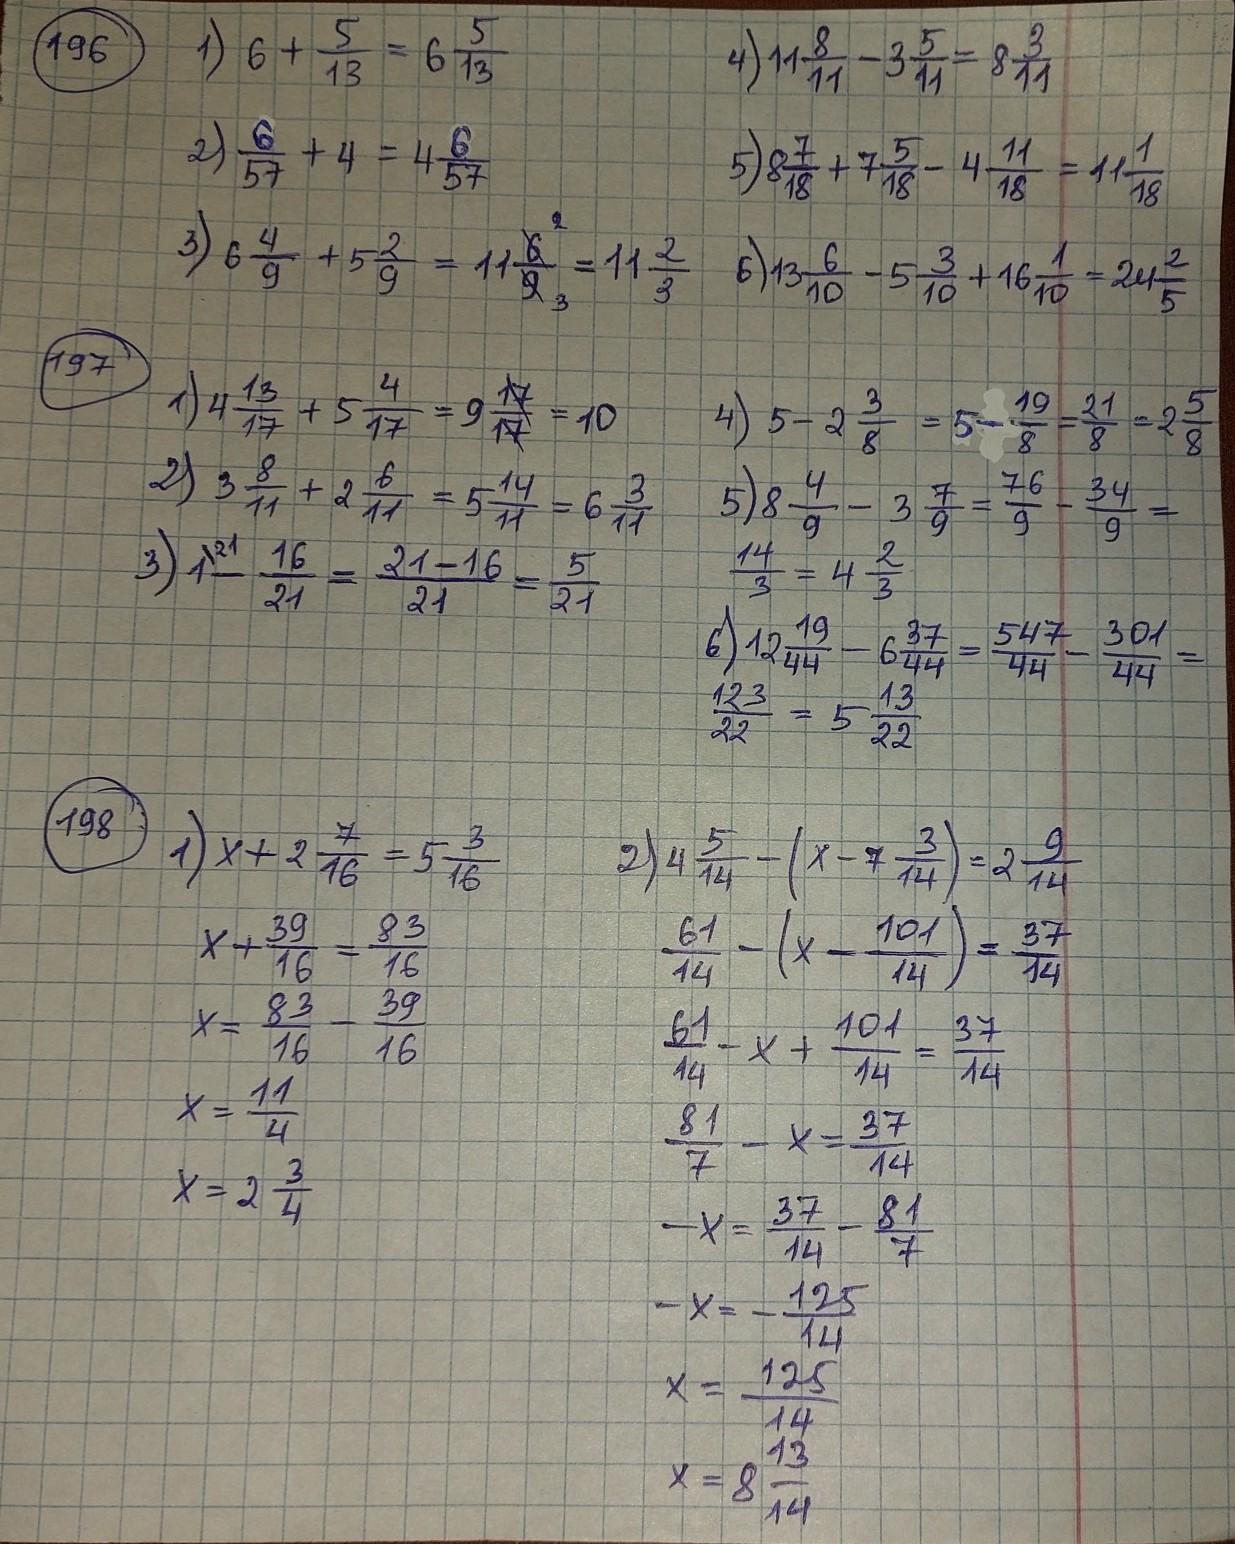 196
1) 6 + 5/13 = 6 5/13
2) 6/57 + 4 = 4 6/57
3) 6 4/9 + 5 2/9 = 11 6/9 2 3 = 11 2/3
4) 11 8/11 - 3 5/11 = 8 3/11
5) 8 7/18 + 7 5/18 - 4 11/18 = 11 1/18
6) 13 6/10 - 5 3/10 + 16 1/10 = 24 2/5
197
1) 4 13/17 + 5 4/17 = 9 17/17 = 10
2) 3 8/11 + 2 6/11 = 5 14/11 = 6 3/11
3) 1\21 - 16/21 = 21-16/21 = 5/21
4) 5 - 2 3/8 = 5 - 19/8 = 21/8 = 2 5/8
5) 8 4/9 - 3 7/9 = 76/9 - 34/9 =
14/3 = 4 2/3
6) 12 19/44 - 6 37/44 = 547/44 - 301/44 =
123/22 = 5 13/22
198
1) x + 2 7/16 = 5 3/16
x + 39/16 = 83/16
x = 83/16 - 39/16
x = 11/4
x = 2 3/4
2) 4 5/14 - (x - 7 3/14) = 2 9/14
61/14 - (x - 101/14) = 37/14
61/14 - x + 101/14 = 37/14
81/7 - x = 37/14
-x = 37/14 - 81/7
-x = -125/14
x = 125/14
x = 8 13/14